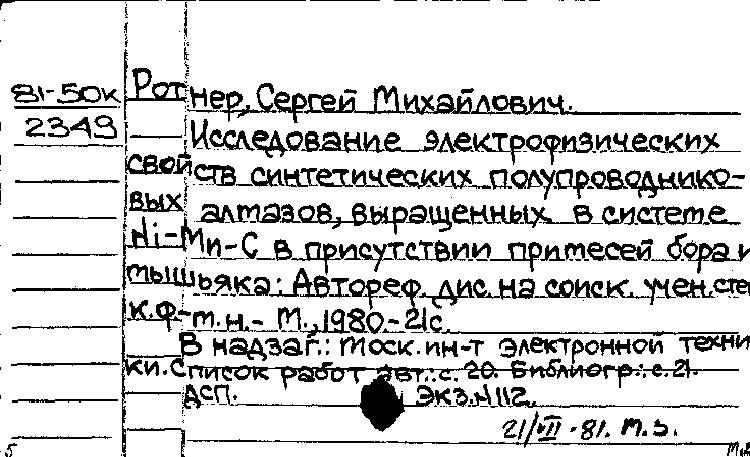 81-50к Ротнер, Сергей Михайлович.
2349 Исследование электрофизических
свойств синтетических полупроводнико-
вых алтазов, выращенных в системе
Ni-Mn-C в присутствии примесей бора и
мышьяка: Автореф. дис. на соиск. учен. сте
к.ф-м.н. - М., 1980-21с.
В надзаг.: Моск. ин-т электронной техни
ки. Список работ авт.: с. 20. Библиогр.: с. 21.
АСП. Экз. N 112.
21/VII-81. М.З.
5